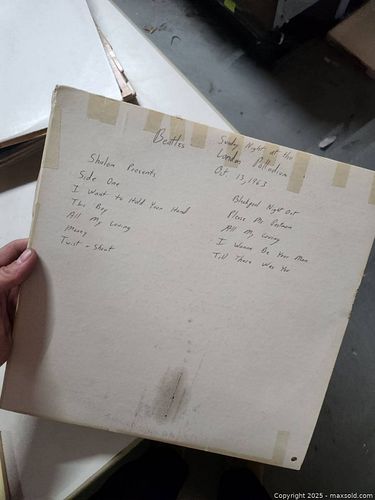 Beatles
Shalom Presents
Side One
I Want to Hold Your Hand
This Boy
All My Loving
Money
Twist - Shout
Sunday Night at the
London Palladium
Oct. 13, 1963
Blackpool Night Out
Please Mr Postman
All My Loving
I Wanna Be Your Man
Till There Was You
Copyright © 2025 - maxsold.com